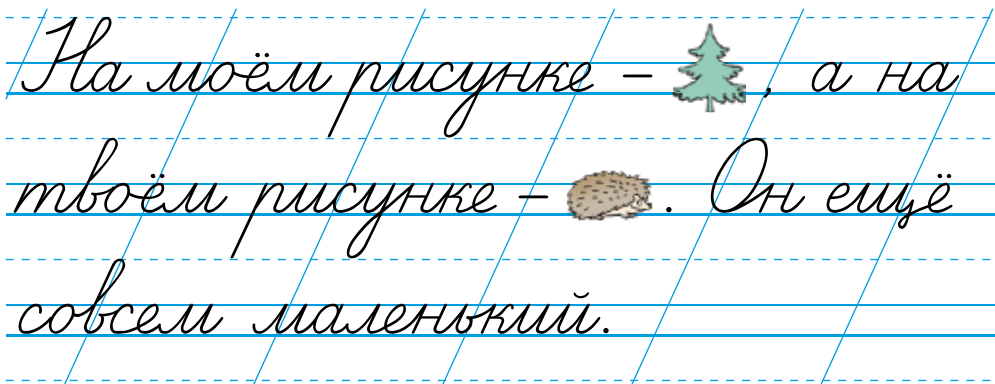 На моём рисунке – , а на
твоём рисунке – . Он ещё
совсем маленький.